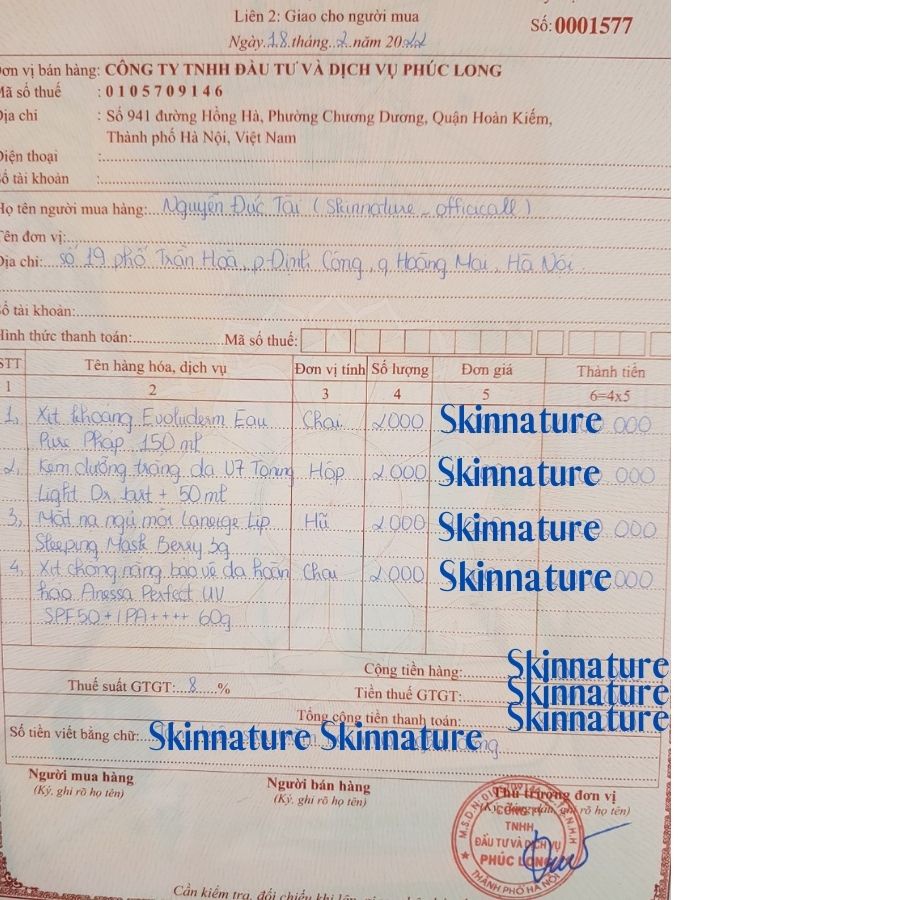 Liên 2: Giao cho người mua
Số: 0001577
Ngày 18 tháng 2 năm 2022
ơn vị bán hàng: CÔNG TY TNHH ĐẦU TƯ VÀ DỊCH VỤ PHÚC LONG
Mã số thuế : 0105709146
Địa chỉ : Số 941 đường Hồng Hà, Phường Chương Dương, Quận Hoàn Kiếm,
Thành phố Hà Nội, Việt Nam
Điện thoại :
Số tài khoản :
Họ tên người mua hàng: Nguyễn Đức Tài (Skinnature_officicall)
Tên đơn vị:
Địa chỉ: số 19 phố Trần Hoà, p Định Công, q Hoàng Mai, Hà Nội
Số tài khoản:
Hình thức thanh toán: Mã số thuế:
STT Tên hàng hóa, dịch vụ Đơn vị tính Số lượng Đơn giá Thành tiền
1 2 3 4 5 6=4x5
1, Xịt khoáng Evoluderm Eau Chai 2000 Skinnature 000
Pure Pháp 150 ml
2, Kem dưỡng trắng da V7 Toning Hộp 2000 Skinnature 000
Light Dr. Jart + 50ml
3, Mặt nạ ngủ môi Laneige Lip Hũ 2000 Skinnature 000
Sleeping Mask Berry 3g
4, Xịt chống nắng bảo vệ da hoàn Chai 2000 Skinnature 000
hảo Anessa Perfect UV
SPF50+ PA++++ 60g
Cộng tiền hàng: Skinnature
Thuế suất GTGT: 8 % Tiền thuế GTGT: Skinnature
Tổng cộng tiền thanh toán: Skinnature
Số tiền viết bằng chữ: Skinnature Skinnature đồng
Người mua hàng Người bán hàng Thủ trưởng đơn vị
(Ký, ghi rõ họ tên) (Ký, ghi rõ họ tên) (Ký, ghi rõ họ tên)
CÔNG TY
TNHH
ĐẦU TƯ VÀ DỊCH VỤ
PHÚC LONG
THÀNH PHỐ HÀ NỘI
Cần kiểm tra, đối chiếu khi